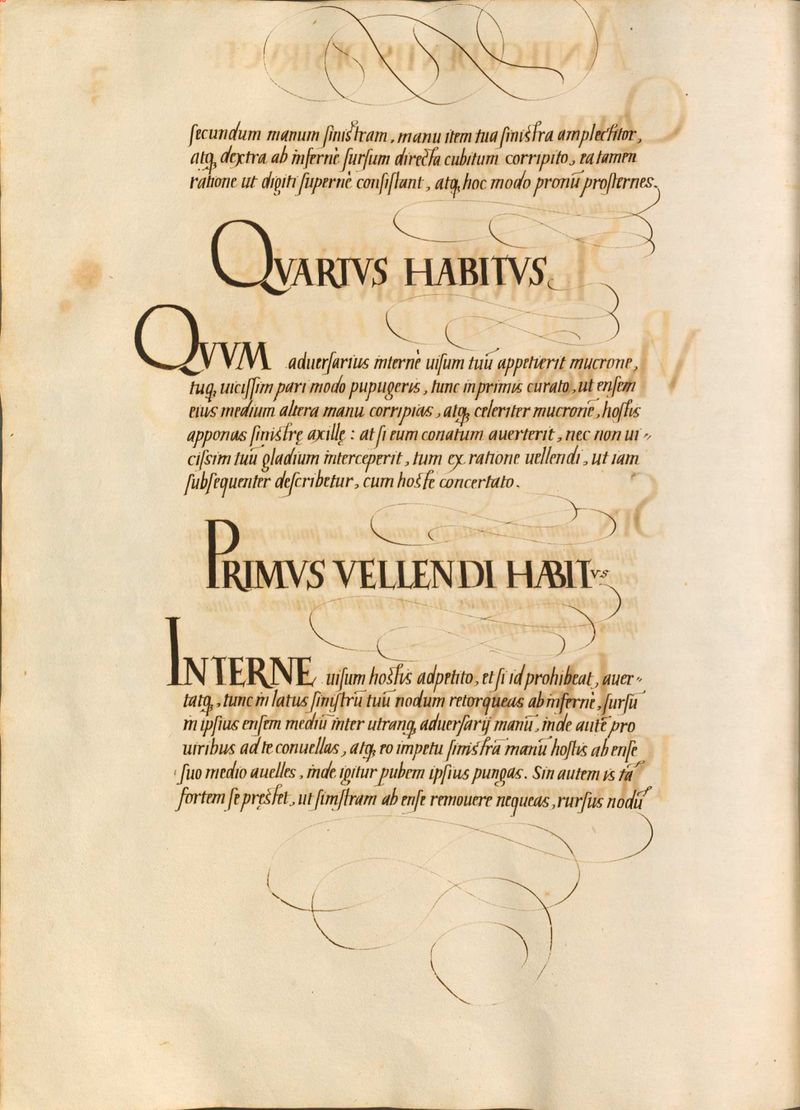 secundum manum sinistram, manu item tua sinistra amplectitor,
atq, dextra ab infernè sursum directa cubitum corripito, ea tamen
ratione ut digiti supernè consistant, atq, hoc modo pronū prosternes.
QVARTVS HABITVS
QVVM aduersarius internè uisum tuū appetierit mucrone,
tuq, uicissim pari modo pupugeris, tunc inprimis curato, ut ensem
eius medium altera manu corripias, atq, celeriter mucronē, hostis
apponas sinistrę axillę: at si eum conatum auerterit, nec non ui-
cissim tuū gladium interceperit, tum ex ratione uellendi, ut iam
subsequenter describetur, cum hoste concertato.
PRIMVS VELLENDI HABITVS
INTERNE uisum hostis adpetito, et si id prohibeat, auer-
tatq, tunc in latus sinistrū tuū nodum retorqueas ab infernè, sursū
in ipsius ensem mediū inter utranq, aduersarij manū, inde autē pro
uiribus ad te conuellas, atq, eo impetu sinistrā manū hostis ab ense
suo medio auelles, inde igitur pubem ipsius pungas. Sin autem is tā
fortem se pręstet, ut sinistram ab ense remouere nequeas, rursus nodū